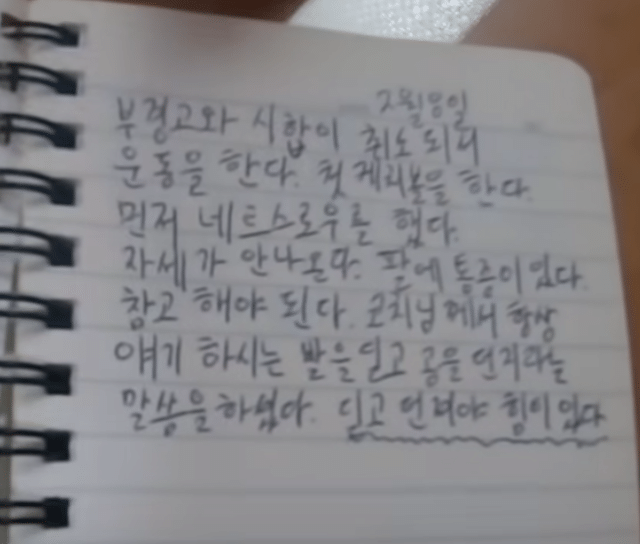 2월8일
부경고와 시합이 취소 되어
운동을 한다. 첫 캐치볼을 한다.
먼저 네트스로우를 했다.
자세가 안나온다. 팔에 통증이 있다.
참고 해야 된다. 코치님께서 항상
얘기 하시는 발을 딛고 공을 던지라는
말씀을 하셨다. 딛고 던져야 힘이 있다